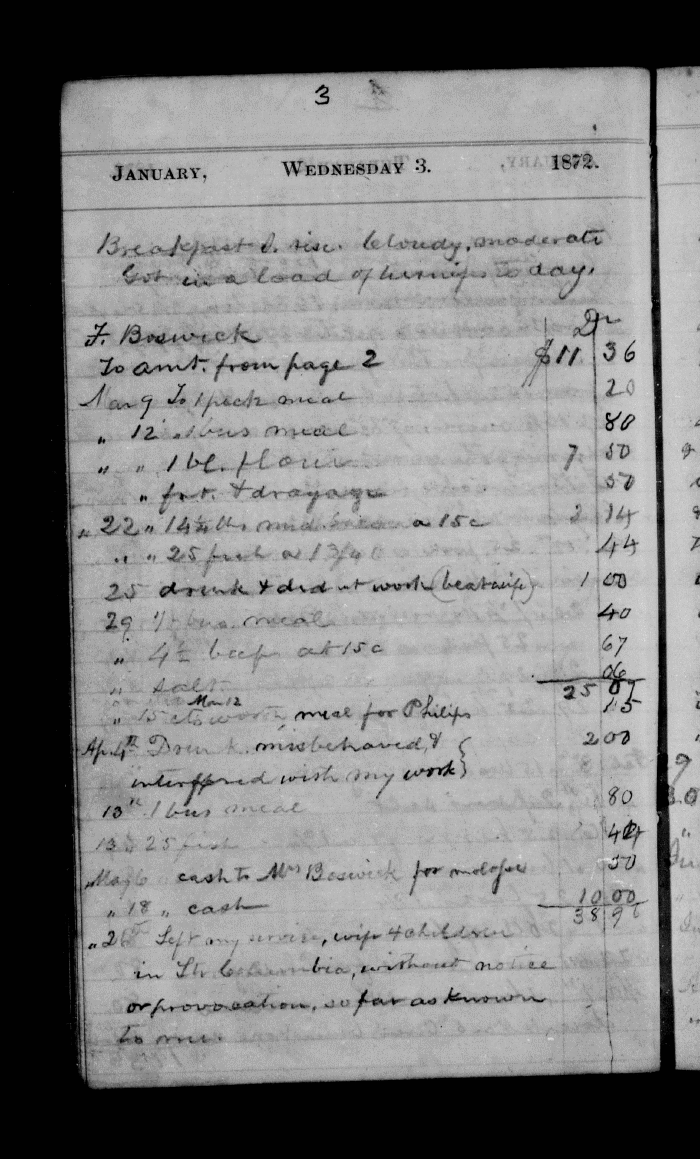 3
JANUARY, WEDNESDAY 3. 1872.
Breakfast S. rise. Cloudy, moderate
Got in a load of turnips today.
F. Boswick Dr
To amt. from page 2 $11 36
Mar 9 To 1 peck meal 20
" 12 " 1 bus meal 80
" " 1 bl. flour 7 50
" frt. & drayage 50
" 22 " 14¼ lbs a 15c 2 14
" " 25 fish a 13/40 44
25 drunk & did nt work (beat wife) 1 00
29 ½ bus. meal 40
" 4½ beef at 15c 67
" salt 06
25 07
" 15 cts worth Mar 12 meal for Philips 15
Ap. 4th Drunk. misbehaved, & { 2 00
interffered with my work}
13" 1 bus meal 80
13 " 25 fish 44
May 6 cash to Mrs Boswick for molasse 50
" 18 " cash 10 00
38 96
" 26th Left my service, wife & children
in St. Columbia, without notice
or provocation, so far as known
to me.